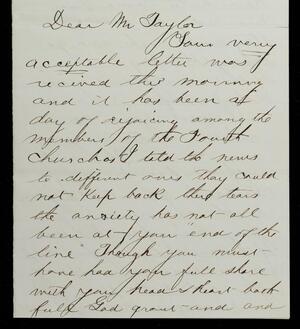 Dear Mr Taylor
Your verry
acceptable letter was
recived this morning
and it has been a
day of rejoicing among the
members of the Fourth
Church as I told the news
to different ones they could
not keep back their tears
the anxiety has not all
been at your "end of the
line" Though you must
have had your full share
with your head & heart both
full God grant and and